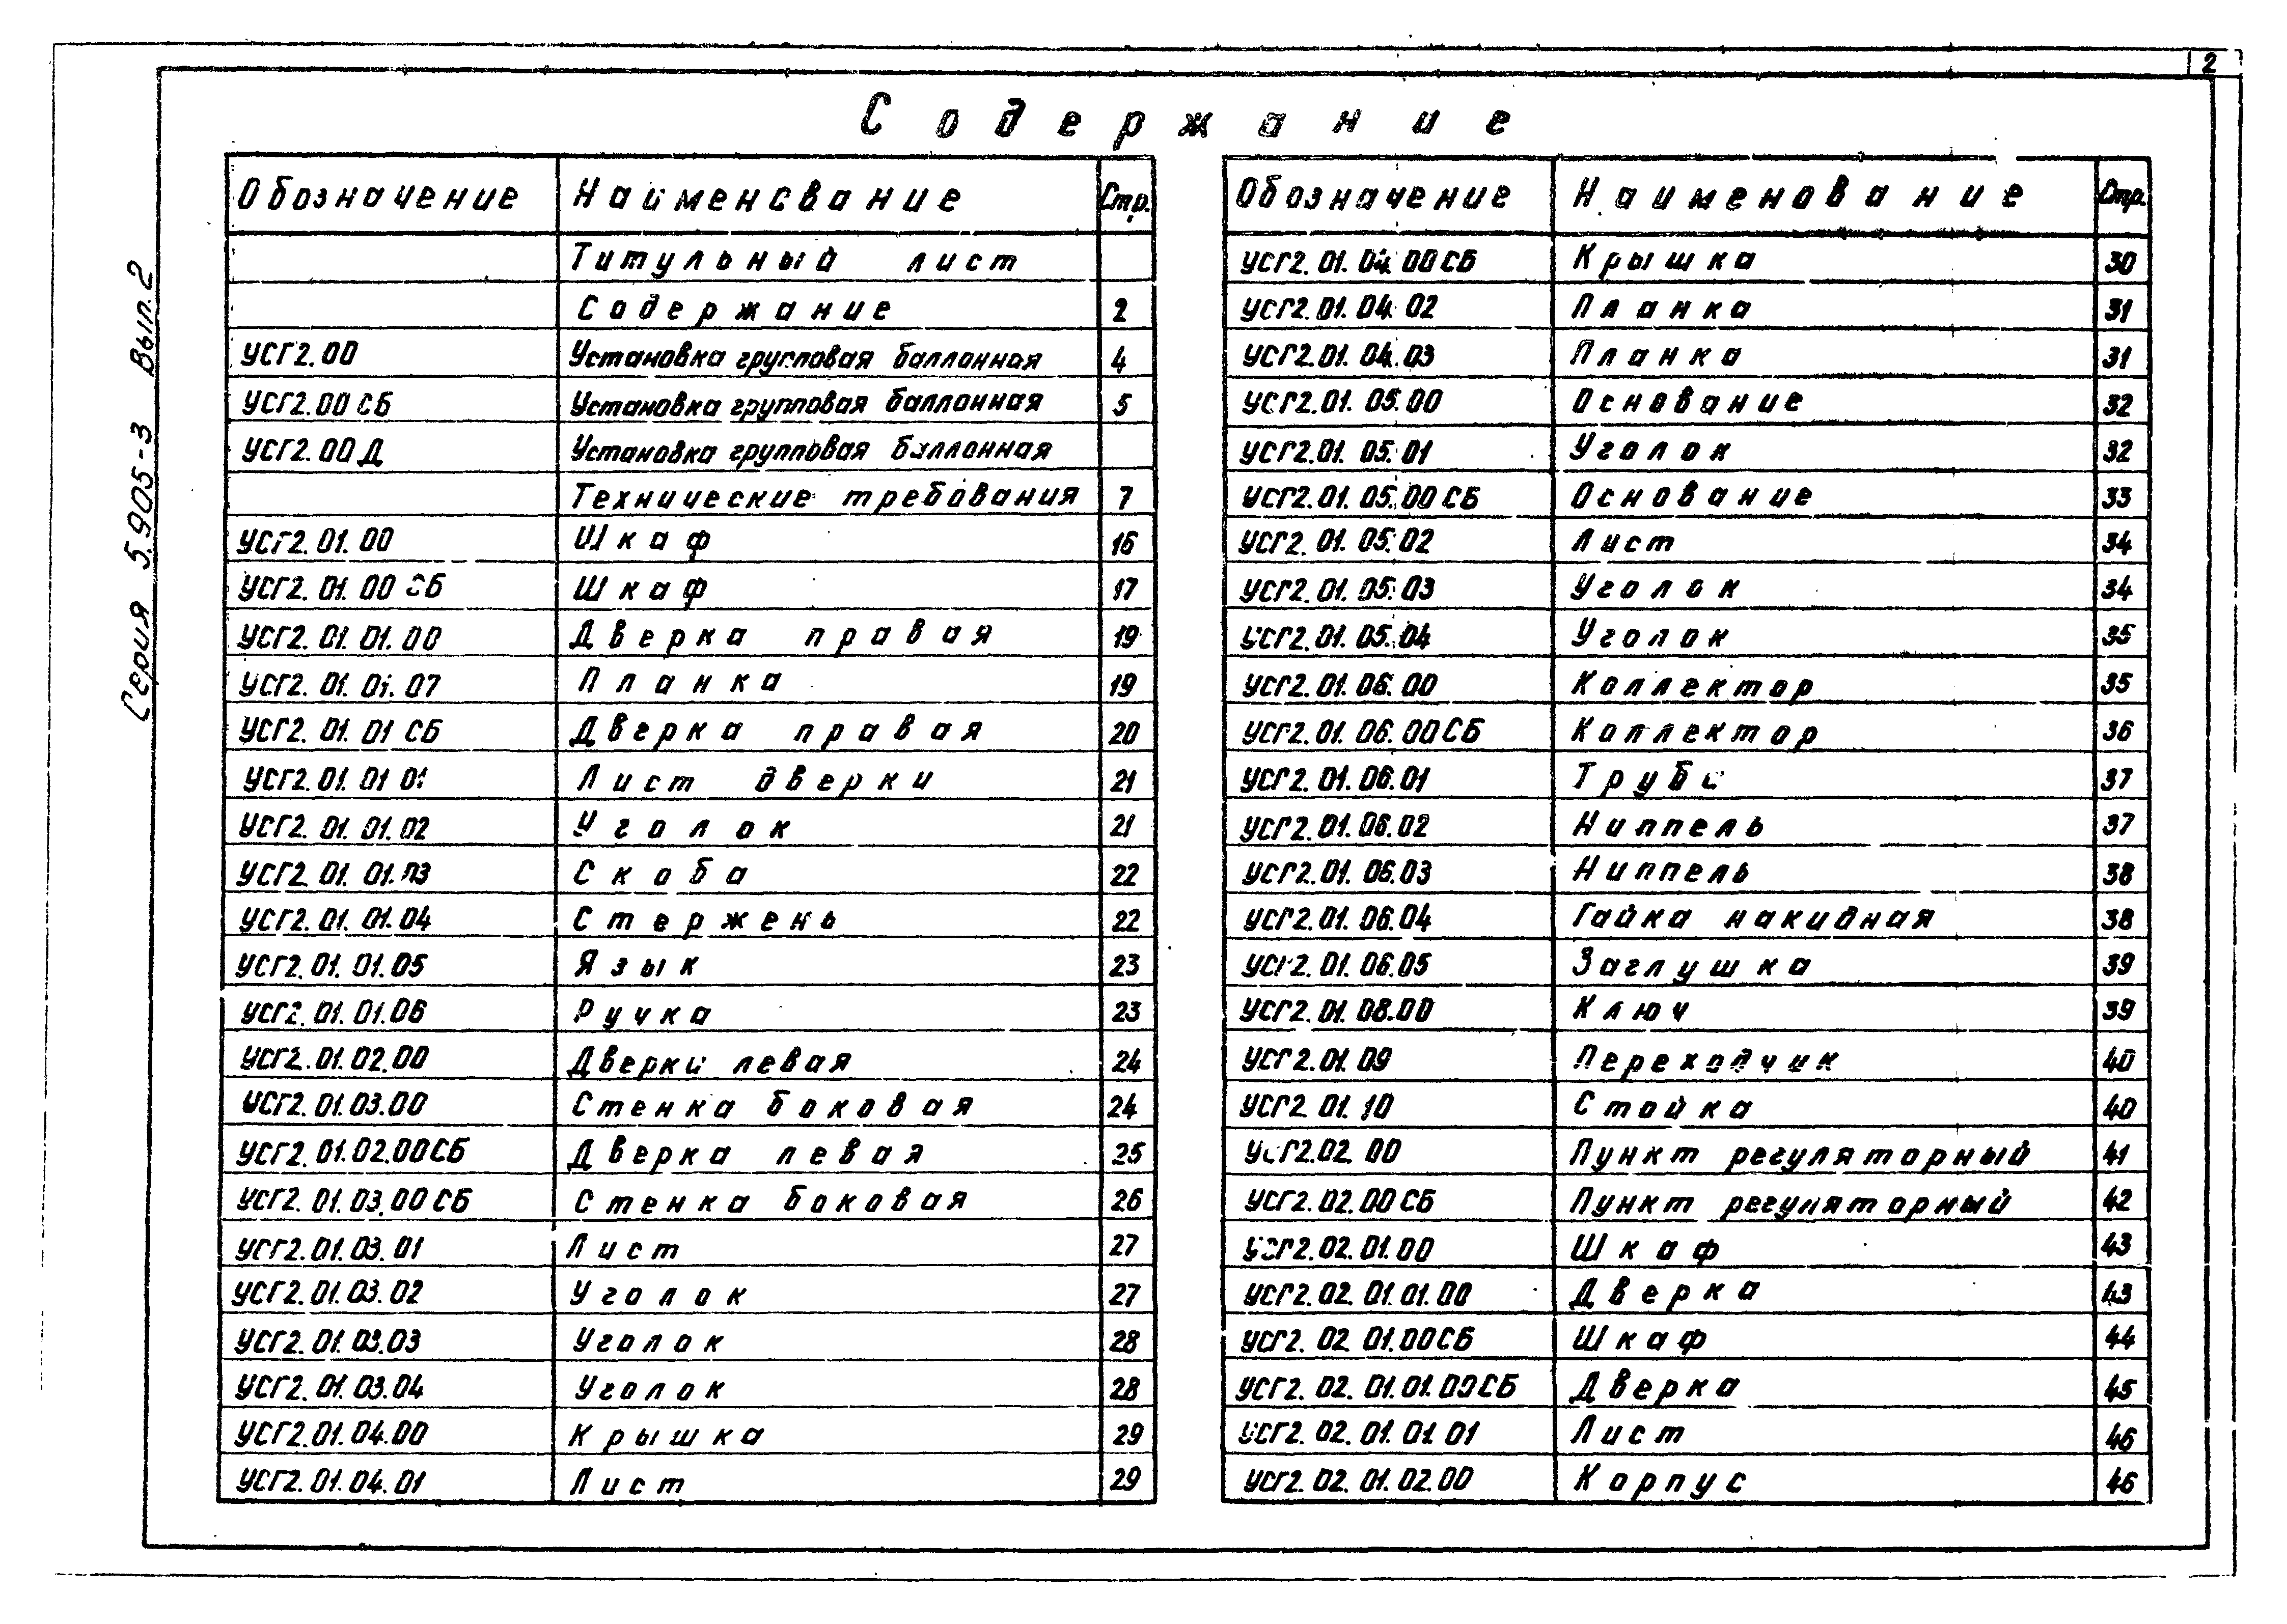 2
Содержание
Серия 5.905-3 Вып.2
Обозначение Наименование Стр.
Титульный лист
Содержание 2
УСГ2.00 Установка групповая баллонная 4
УСГ2.00 СБ Установка групповая баллонная 5
УСГ2.00 Д Установка групповая баллонная
Технические требования 7
УСГ2.01.00 Шкаф 16
УСГ2.01.00 СБ Шкаф 17
УСГ2.01.01.00 Дверка правая 19
УСГ2.01.01.07 Планка 19
УСГ2.01.01 СБ Дверка правая 20
УСГ2.01.01 01 Лист дверки 21
УСГ2.01.01.02 Уголок 21
УСГ2.01.01.03 Скоба 22
УСГ2.01.01.04 Стержень 22
УСГ2.01.01.05 Язык 23
УСГ2.01.01.06 Ручка 23
УСГ2.01.02.00 Дверки левая 24
УСГ2.01.03.00 Стенка боковая 24
УСГ2.01.02.00СБ Дверка левая 25
УСГ2.01.03.00СБ Стенка боковая 26
УСГ2.01.03.01 Лист 27
УСГ2.01.03.02 Уголок 27
УСГ2.01.03.03 Уголок 28
УСГ2.01.03.04 Уголок 28
УСГ2.01.04.00 Крышка 29
УСГ2.01.04.01 Лист 29
Обозначение Наименование Стр.
УСГ2.01.04.00СБ Крышка 30
УСГ2.01.04.02 Планка 31
УСГ2.01.04.03 Планка 31
УСГ2.01.05.00 Основание 32
УСГ2.01.05.01 Уголок 32
УСГ2.01.05.00СБ Основание 33
УСГ2.01.05.02 Лист 34
УСГ2.01.05.03 Уголок 34
УСГ2.01.05.04 Уголок 35
УСГ2.01.06.00 Коллектор 35
УСГ2.01.06.00СБ Коллектор 36
УСГ2.01.06.01 Труба 37
УСГ2.01.06.02 Ниппель 37
УСГ2.01.06.03 Ниппель 38
УСГ2.01.06.04 Гайка накидная 38
УСГ2.01.06.05 Заглушка 39
УСГ2.01.08.00 Ключ 39
УСГ2.01.09 Переходчик 40
УСГ2 01.10 Стойка 40
УСГ2.02.00 Пункт регуляторный 41
УСГ2.02.00СБ Пункт регуляторный 42
УСГ2.02.01.00 Шкаф 43
УСГ2.02.01.01.00 Дверка 43
УСГ2.02 01.00СБ Шкаф 44
УСГ2.02.01.01.00СБ Дверка 45
УСГ2.02.01.01 01 Лист 46
УСГ2.02.01.02.00 Корпус 46